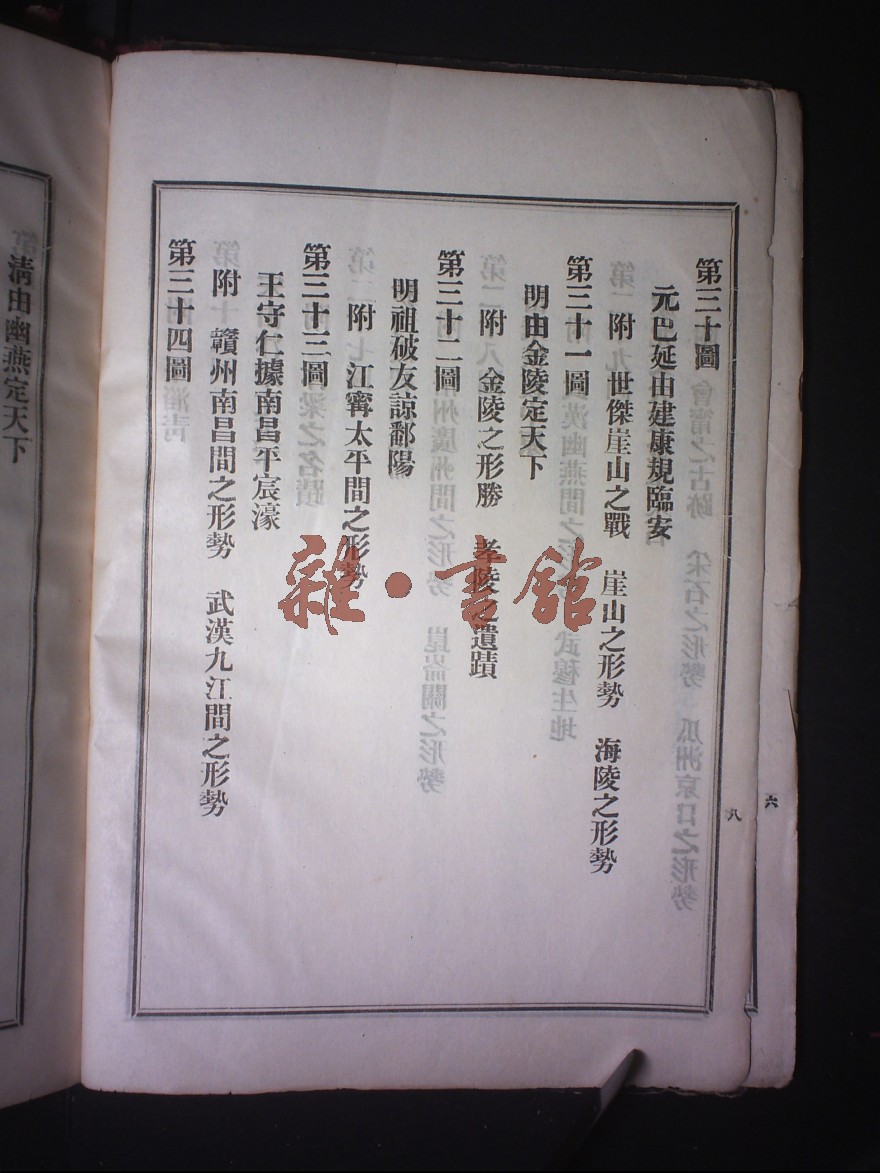 第三十圖
元巴延由建康規臨安
附 世傑崖山之戰 崖山之形勢 海陵之形勢
第三十一圖
明由金陵定天下
附 金陵之形勝 孝陵之遺蹟
第三十二圖
明祖破友諒鄱陽
附 江寗太平間之形勢
第三十三圖
王守仁據南昌平宸濠
附 贛州南昌間之形勢 武漢九江間之形勢
第三十四圖
清由幽燕定天下
八
六
雜·書館